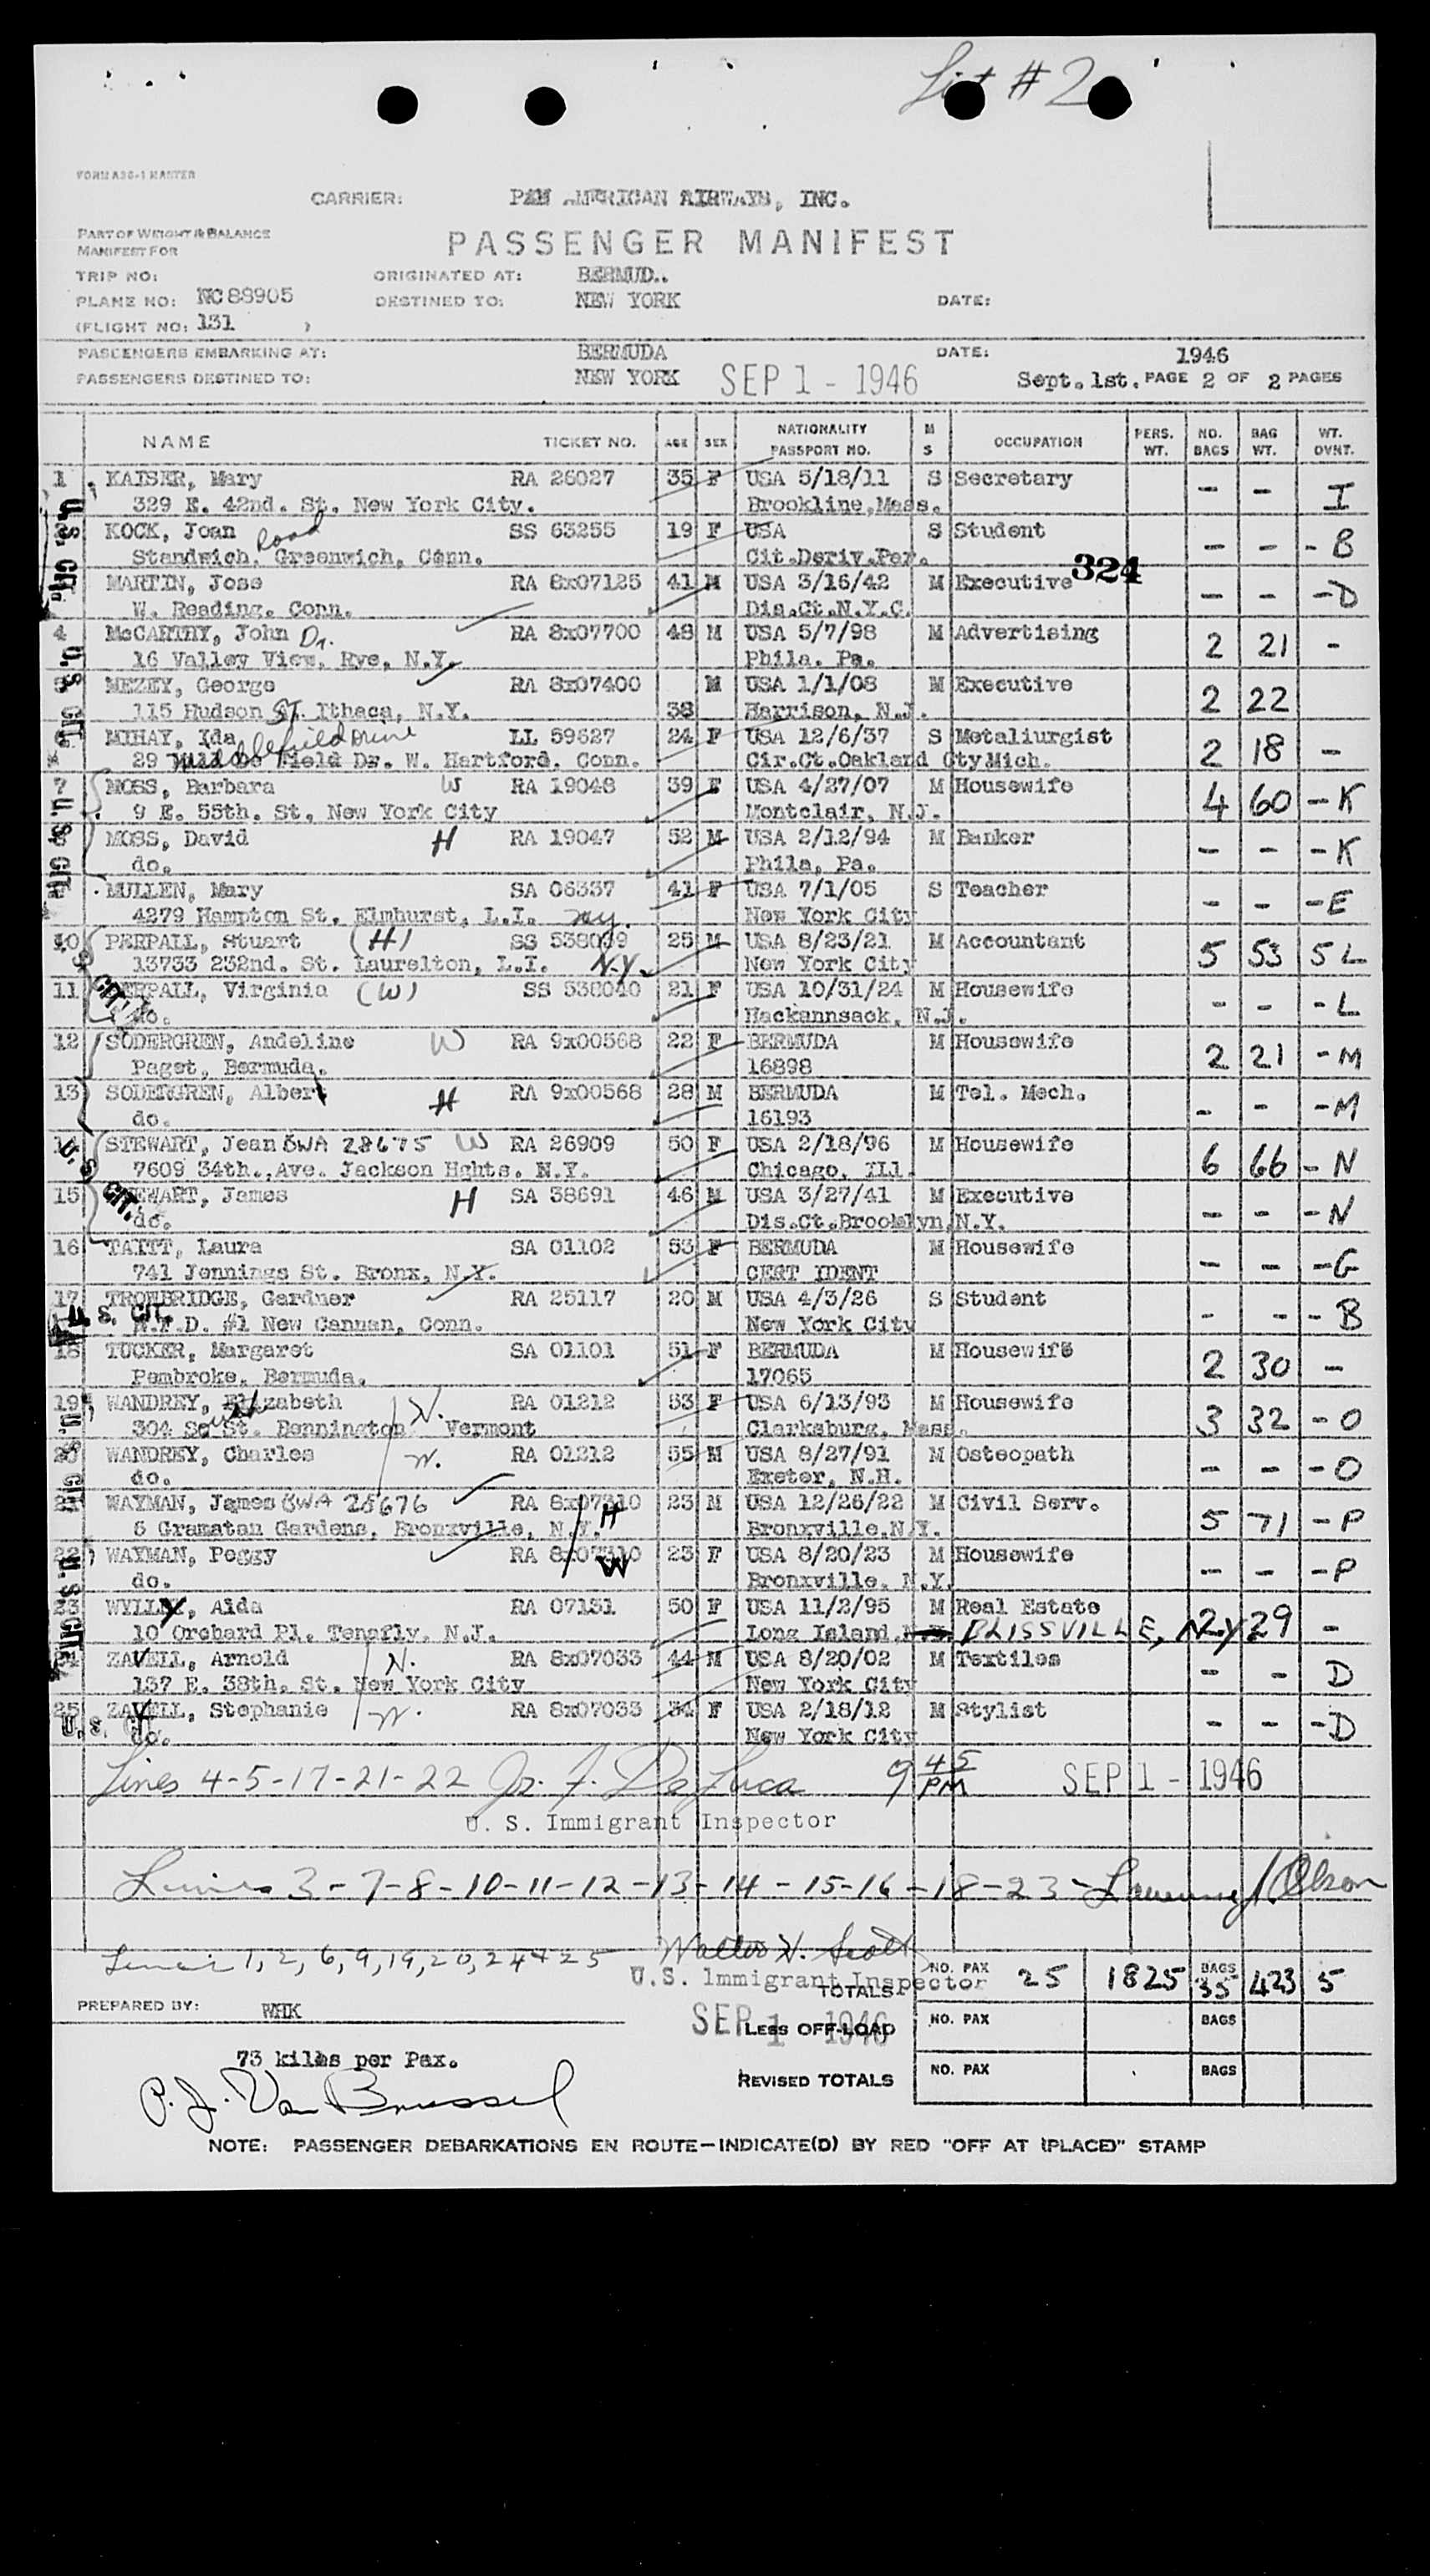 List # 2
FORM A36-1 MASTER
CARRIER: PAN AMERICAN AIRWAYS, INC.
PART OF WEIGHT & BALANCE
MANIFEST FOR
PASSENGER MANIFEST
TRIP NO: ORIGINATED AT: BERMUD..
PLANE NO: NC 88905 DESTINED TO: NEW YORK DATE:
(FLIGHT NO: 131 )
PASSENGERS EMBARKING AT: BERMUDA DATE: 1946
PASSENGERS DESTINED TO: NEW YORK SEP 1 - 1946 Sept. 1st. PAGE 2 OF 2 PAGES
NAME TICKET NO. AGE SEX NATIONALITY PASSPORT NO. M S OCCUPATION PERS. WT. NO. BAGS BAG WT. WT. OVNT.
1 KAISER, Mary RA 26027 35 F USA 5/18/11 S Secretary - - I
329 E. 42nd. St. New York City. Brookline, Mass.
KOCK, Joan SS 63255 19 F USA S Student - - - B
Standwich. Road Greenwich, Conn. Cit.Deriv.Per.
324
MARTIN, Jose RA 8x07125 41 M USA 3/16/42 M Executive - - - D
W. Reading. Conn. Dis.Ct.N.Y.C.
4 McCARTHY, John Dr. RA 8x07700 48 M USA 5/7/98 M Advertising 2 21 -
16 Valley View, Rye, N.Y. Phila. Pa.
5 MEZEY, George RA 8x07400 M USA 1/1/08 M Executive 2 22
115 Hudson ST. Ithaca, N.Y. 38 Harrison, N.J.
6 MIHAY, Ida LL 59627 24 F USA 12/6/37 S Metaliurgist 2 18 -
29 Middlefield Drive Field Dr. W. Hartford. Conn. Cir.Ct.Oakland Cty Mich.
7 MOSS, Barbara W RA 19048 39 F USA 4/27/07 M Housewife 4 60 - K
9 E. 55th. St, New York City Montclair, N.J.
8 MOSS, David H RA 19047 52 M USA 2/12/94 M Banker - - - K
do. Phila, Pa.
MULLEN, Mary SA 06337 41 F USA 7/1/05 S Teacher - - - E
4279 Hampton St. Elmhurst, L.I. ny. New York City
10 PERPALL, Stuart (H) SS 538039 25 M USA 8/23/21 M Accountant 5 53 5 L
13733 232nd. St. Laurelton, L.I. N.Y. New York City
11 PERPALL, Virginia (W) SS 538040 21 F USA 10/31/24 M Housewife - - - L
do. Hackannsack, N.J.
12 SODERGREN, Andeline W RA 9x00568 22 F BERMUDA M Housewife 2 21 - M
Paget, Bermuda. 16898
13 SODERGREN, Albert H RA 9x00568 28 M BERMUDA M Tel. Mech. - - - M
do. 16193
14 STEWART, Jean BWA 28675 W RA 26909 50 F USA 2/18/96 M Housewife 6 66 - N
7609 34th., Ave. Jackson Hghts. N.Y. Chicago, Ill.
15 STEWART, James H SA 38691 46 M USA 3/27/41 M Executive - - - N
do. Dis.Ct.Brooklyn, N.Y.
16 TAITT, Laura SA 01102 53 F BERMUDA M Housewife - - - G
741 Jennings St. Bronx, N.Y. CERT IDENT
17 TROWBRIDGE, Gardner RA 25117 20 M USA 4/3/26 S Student - - - B
U. S. CIT. R.F.D. #1 New Cannan, Conn. New York City
18 TUCKER, Margaret SA 01101 51 F BERMUDA M Housewife 2 30 -
Pembroke. Bermuda. 17065
19 WANDREY, Elizabeth W. RA 01212 53 F USA 6/13/93 M Housewife 3 32 - O
304 South St. Bennington Vermont Clarksburg, Mass.
20 WANDREY, Charles RA 01212 55 M USA 8/27/91 M Osteopath - - - O
do. Exeter, N.H.
21 WAYMAN, James BWA 25676 RA 8x07310 23 M USA 12/26/22 M Civil Serv. 5 71 - P
6 Gramatan Gardens, Bronxville, N.Y. H Bronxville, N.Y.
22 WAYMAN, Peggy RA 8x07310 W 23 F USA 8/20/23 M Housewife - - - P
do. Bronxville, N.Y.
23 WYLLY, Aida RA 07131 50 F USA 11/2/95 M Real Estate 2 29 -
10 Orchard Pl. Tenafly, N.J. Long Island, BLISSVILLE, N.Y.
24 ZAVELL, Arnold RA 8x07033 44 M USA 8/20/02 M Textiles - - D
137 E. 38th. St. New York City New York City
25 ZAVELL, Stephanie RA 8x07033 34 F USA 2/18/12 M Stylist - - - D
U. S. CIT. do. New York City
Lines 4-5-17-21-22 Jr. F. DeLuca 9 45 PM SEP 1 - 1946
U. S. Immigrant Inspector
Lines 3-7-8-10-11-12-13-14-15-16-18-23- Olson
Lines 1, 2, 6, 9, 19, 20, 24 + 25 Walter H. Scott
U.S. Immigrant Inspector
TOTALS NO. PAX 25 1825 BAGS 35 423 5
PREPARED BY: WHK
SEP 1 1946
LESS OFF-LOAD NO. PAX BAGS
73 kilos per Pax.
REVISED TOTALS NO. PAX BAGS
P. J. Van Brussel
NOTE: PASSENGER DEBARKATIONS EN ROUTE—INDICATE(D) BY RED "OFF AT (PLACE)" STAMP